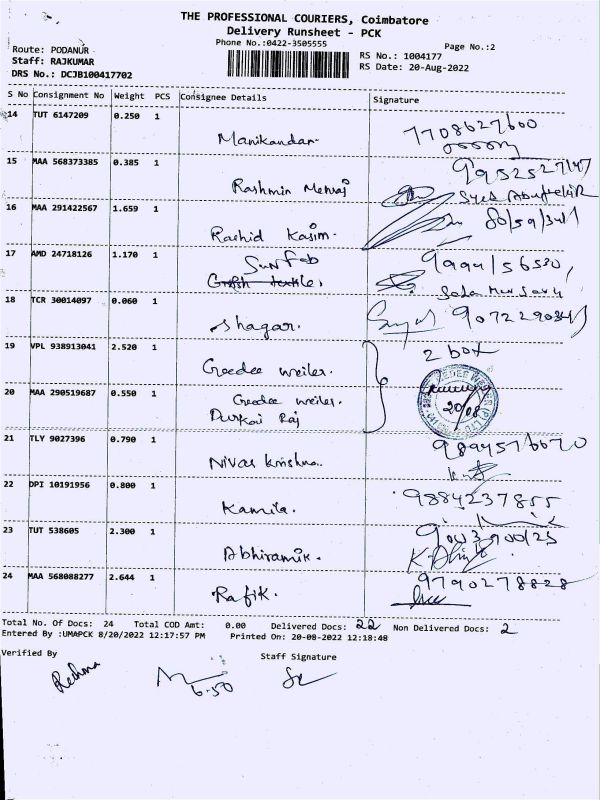 THE PROFESSIONAL COURIERS, Coimbatore
Delivery Runsheet - PCK
Phone No.:0422-3505555
Page No.:2
Route: PODANUR
Staff: RAJKUMAR
DRS No.: DCJB100417702
RS No.: 1004177
RS Date: 20-Aug-2022
S No Consignment No Weight PCS Consignee Details Signature
14 TUT 6147209 0.250 1 Manikandan. 7708627600
15 MAA 568373385 0.385 1 Rashmin
16 MAA 291422567 1.659 1 Rashid Kasim.
17 AMD 24718126 1.170 1
18 TCR 30014097 0.060 1 Shagar.
19 VPL 938913041 2.520 1 Geedee weiler. 2 box
20 MAA 290519687 0.550 1 Geedee weiler.
Durkai Raj
20/08
21 TLY 9027396 0.790 1 Nivas krishna.
22 DPI 10191956 0.800 1 Kamila. 9884237855
23 TUT 538605 2.300 1 Abhiramik.
24 MAA 568088277 2.644 1 Rafik. 9790278828
Total No. Of Docs: 24 Total COD Amt: 0.00 Delivered Docs: 22 Non Delivered Docs: 2
Entered By :UMAPCK 8/20/2022 12:17:57 PM Printed On: 20-08-2022 12:18:48
Verified By Staff Signature
6.50